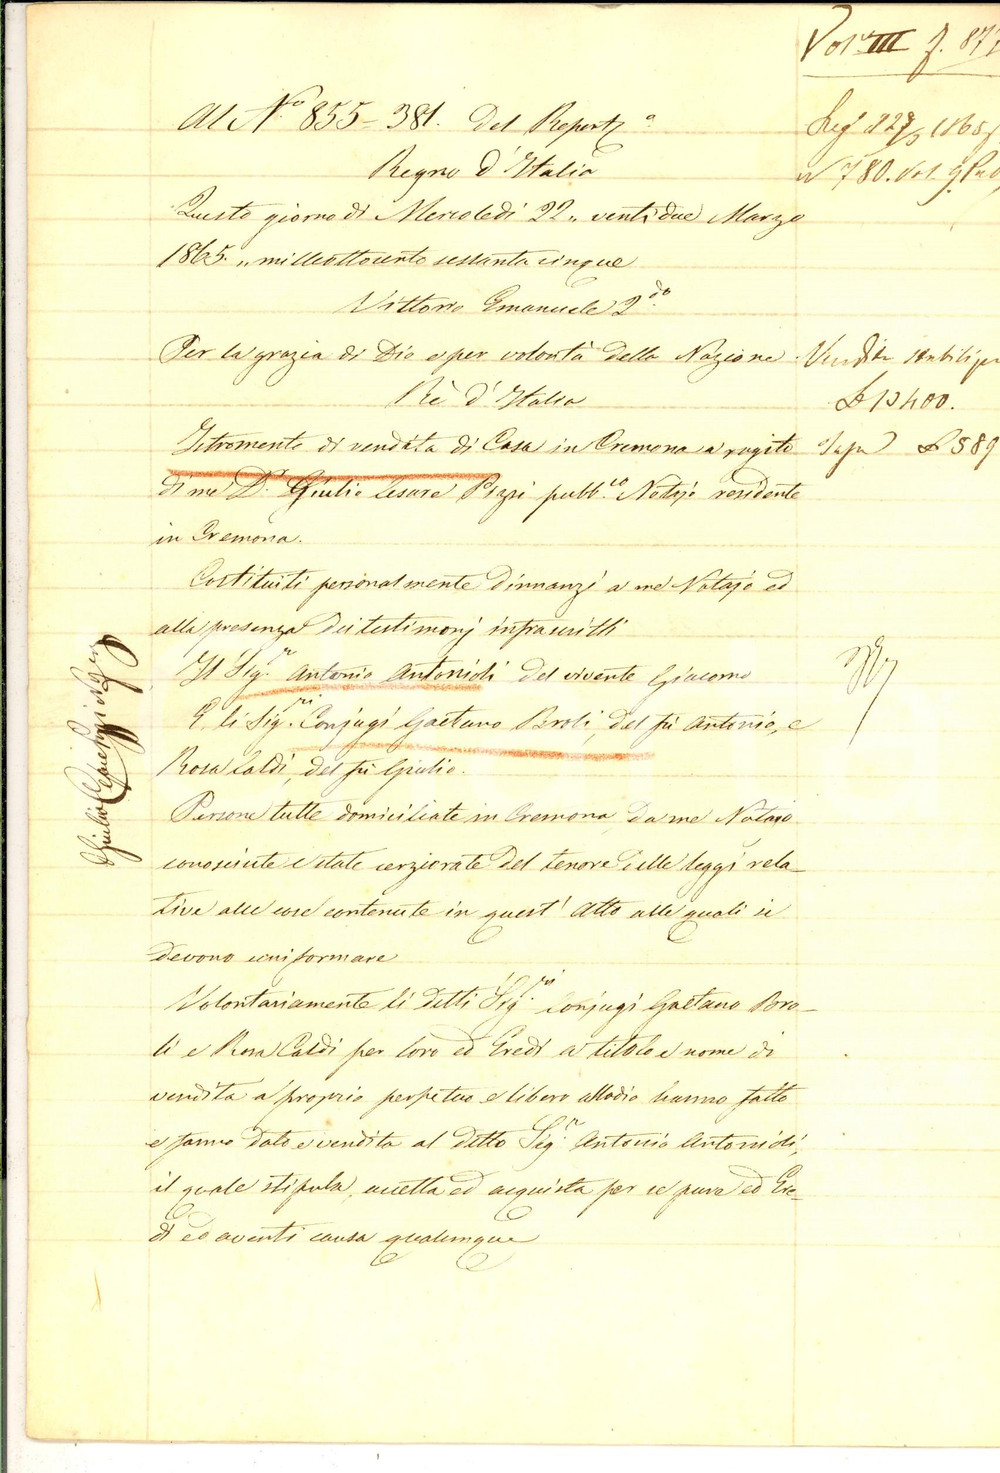 Vol. III f. 877
Al N.° 855=381. del Repert.°
Regno d'Italia
Questo giorno di Mercoledì 22,, ventidue Marzo
1865,, milleottocento sessantacinque
Vittorio Emanuele 2.do
Per la grazia di Dio e per volontà della Nazione
Rè d'Italia
Istromento di vendita di Casa in Cremona a rogito
di me D.r Giulio Cesare Pizzi pubb.co Notajo residente
in Cremona.
Costituiti personalmente dinnanzi a me Notajo ed
alla presenza dei testimonj infrascritti
Il Sig.r Antonio Antonioli del vivente Giacomo
E li Sig.ri Conjugi Gaetano Broli, del fù Antonio, e
Rosa Caldi, del fù Giulio.
Persone tutte domiciliate in Cremona, da me Notajo
conosciute e state cerziorate del tenore delle leggi rela-
tive alle cose contenute in quest'Atto alle quali si
devono uniformare
Volontariamente li detti Sig.ri Conjugi Gaetano Bro-
li e Rosa Caldi per loro ed Eredi a titolo e nome di
vendita a proprio perpetuo e libero allodio hanno fatto
e fanno dato e vendita al detto Sig.r Antonio Antonioli,
il quale stipula, accetta ed acquista per se pure ed Ere-
di ed aventi causa qualunque
1865
N 780. Vol. 9
Vendita stabili per
£ 13400.
Tassa £ 589